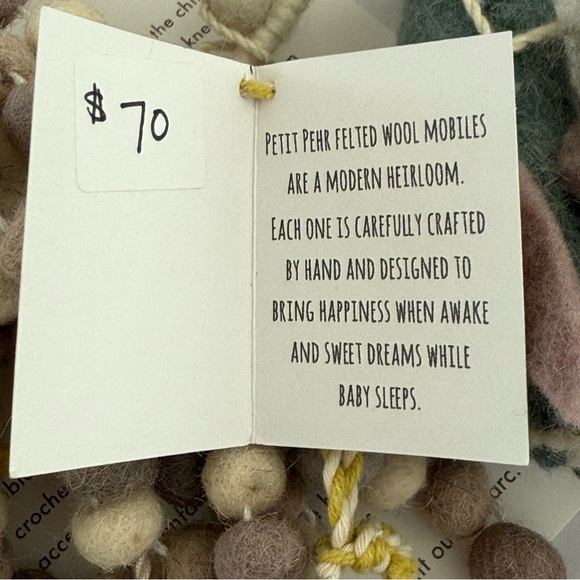 $ 70
PETIT PEHR FELTED WOOL MOBILES
ARE A MODERN HEIRLOOM.
EACH ONE IS CAREFULLY CRAFTED
BY HAND AND DESIGNED TO
BRING HAPPINESS WHEN AWAKE
AND SWEET DREAMS WHILE
BABY SLEEPS.
the chi
kne
croche
acce
arc.